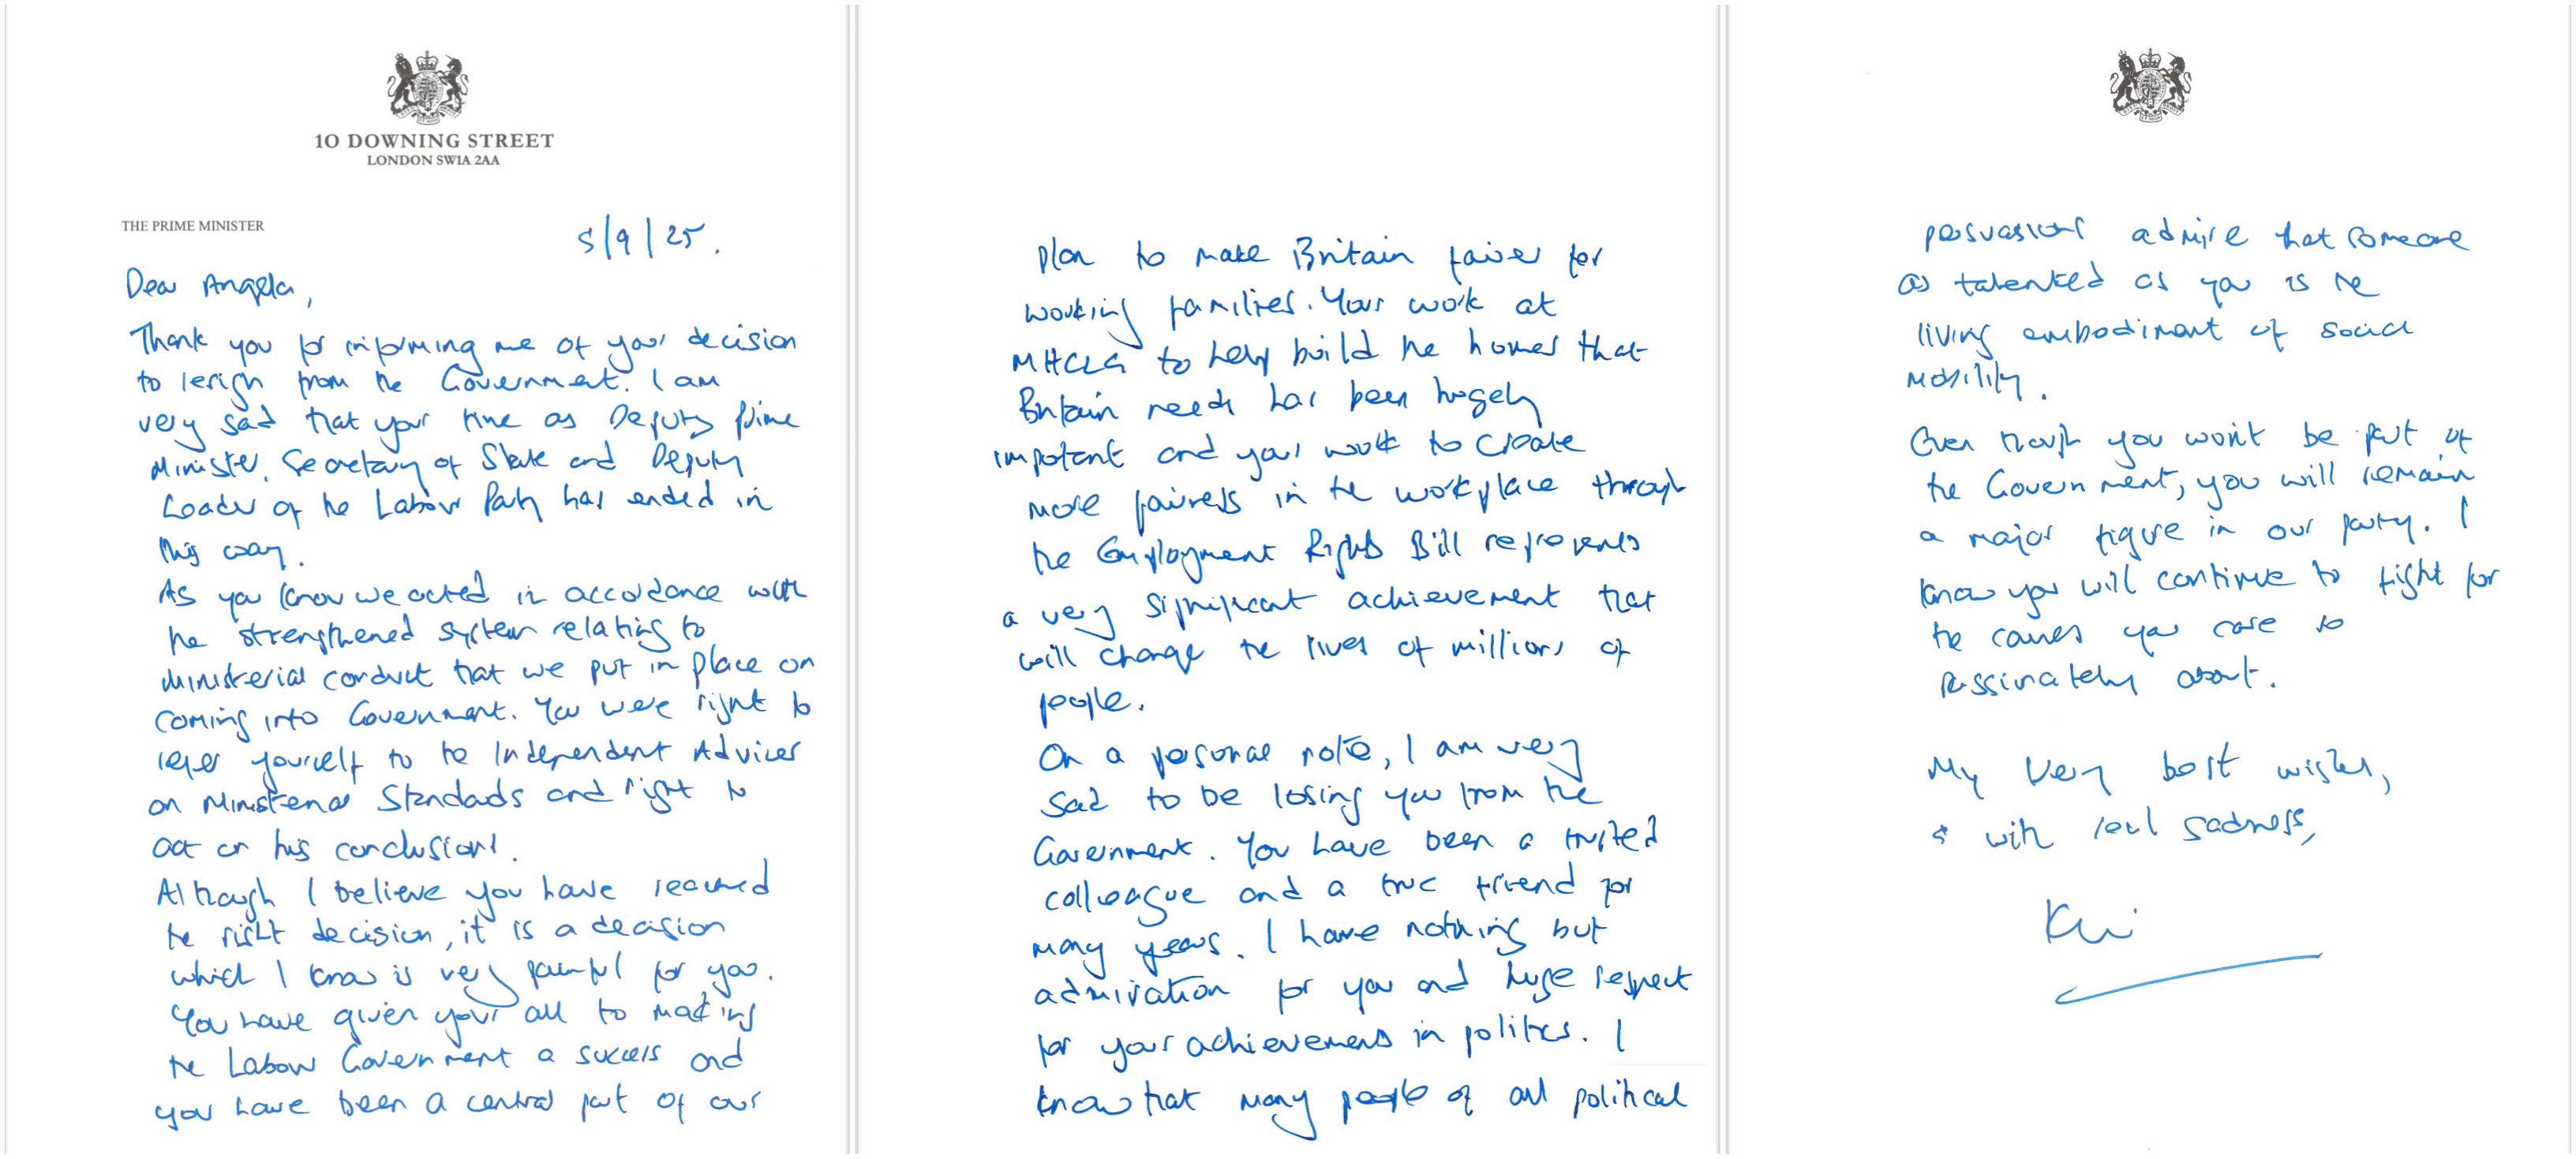 10 DOWNING STREET
LONDON SW1A 2AA
THE PRIME MINISTER
5/9/25.
Dear Angela,
Thank you for informing me of your decision
to resign from the Government. I am
very sad that your time as Deputy Prime
Minister, Secretary of State and Deputy
Leader of the Labour Party has ended in
this way.
As you know we acted in accordance with
the strengthened system relating to
ministerial conduct that we put in place on
coming into Government. You were right to
refer yourself to the Independent Adviser
on Ministerial Standards and right to
act on his conclusions.
Although I believe you have reached
the right decision, it is a decision
which I know is very painful for you.
You have given your all to making
the Labour Government a success and
you have been a central part of our
plan to make Britain fairer for
working families. Your work at
MHCLG to help build the homes that
Britain needs has been hugely
important and your work to create
more fairness in the workplace through
the Employment Rights Bill represents
a very significant achievement that
will change the lives of millions of
people.
On a personal note, I am very
sad to be losing you from the
Government. You have been a trusted
colleague and a true friend for
many years. I have nothing but
admiration for you and huge respect
for your achievements in politics. I
know that many people of all political
persuasions admire that someone
as talented as you is the
living embodiment of social
mobility.
Even though you won't be part of
the Government, you will remain
a major figure in our party. I
know you will continue to fight for
the causes you care so
passionately about.
My very best wishes,
& with real sadness,
Keir